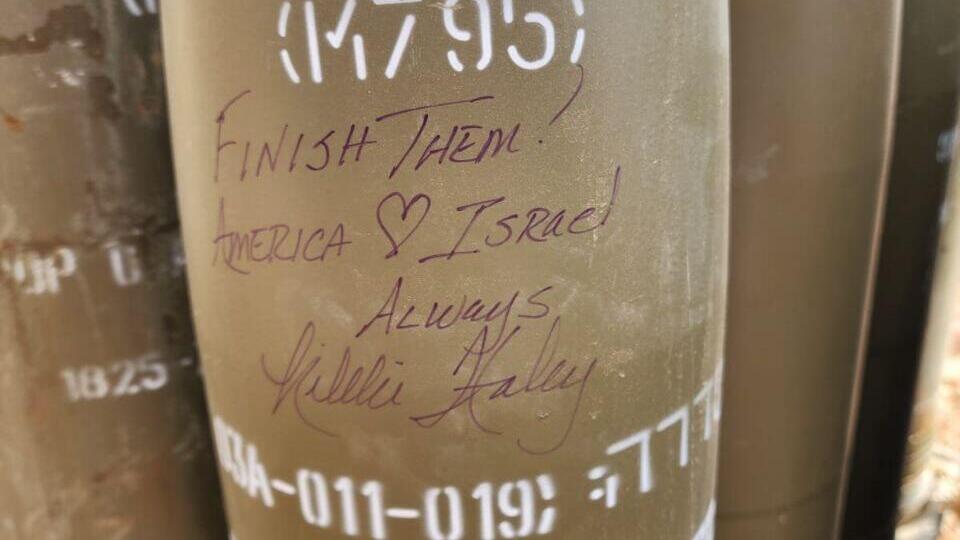 (M795)
FINISH THEM!
AMERICA ♡ ISRAEL
ALWAYS
Nikki Haley
1825
03A-011-019;